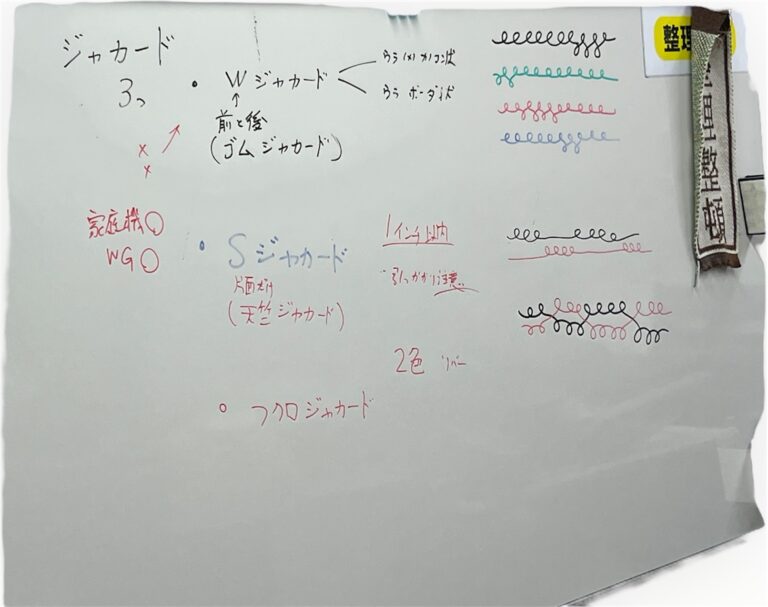 ジャカード
3つ
・ W ジャカード
ウラ ボーダー状
前と後
(ゴムジャカード)
××
家庭機○
WG○
・ S ジャカード
片面だけ
(天竺ジャカード)
1インチ以内
引っかかり注意
2色 リバー
○ フクロジャカード
整理
整頓